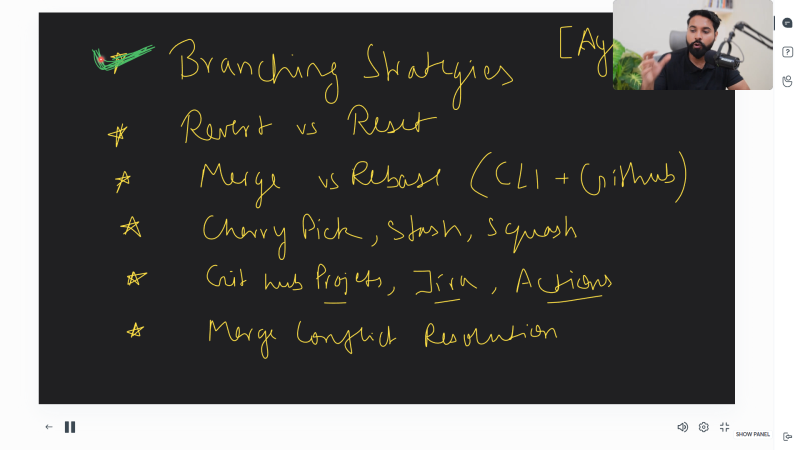 Branching Strategies [Ag
Revert vs Reset
Merge vs Rebase (CLI + Github)
Cherry Pick, Stash, Squash
Git hub Projets, Jira, Actions
Merge Conflict Resolution
SHOW PANEL